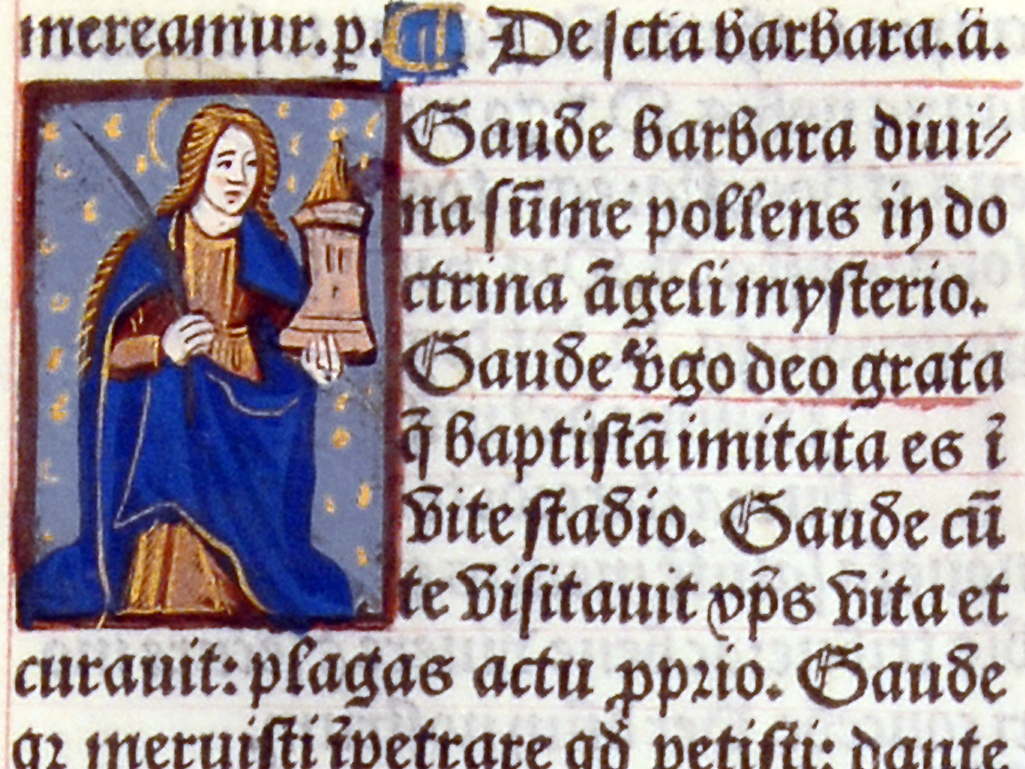 mereamur. p. ¶ De scta barbara. ā.
Gaude barbara diui⸗
na sūme pollens in do
ctrina āgeli mysterio.
Gaude v̄go deo grata
q̄ baptistā imitata es ī
vite stadio. Gaude cū
te visitauit xp̄s vita et
curauit: plagas actu ꝓprio. Gaude
qꝛ meruisti īpetrare qđ petisti: dante